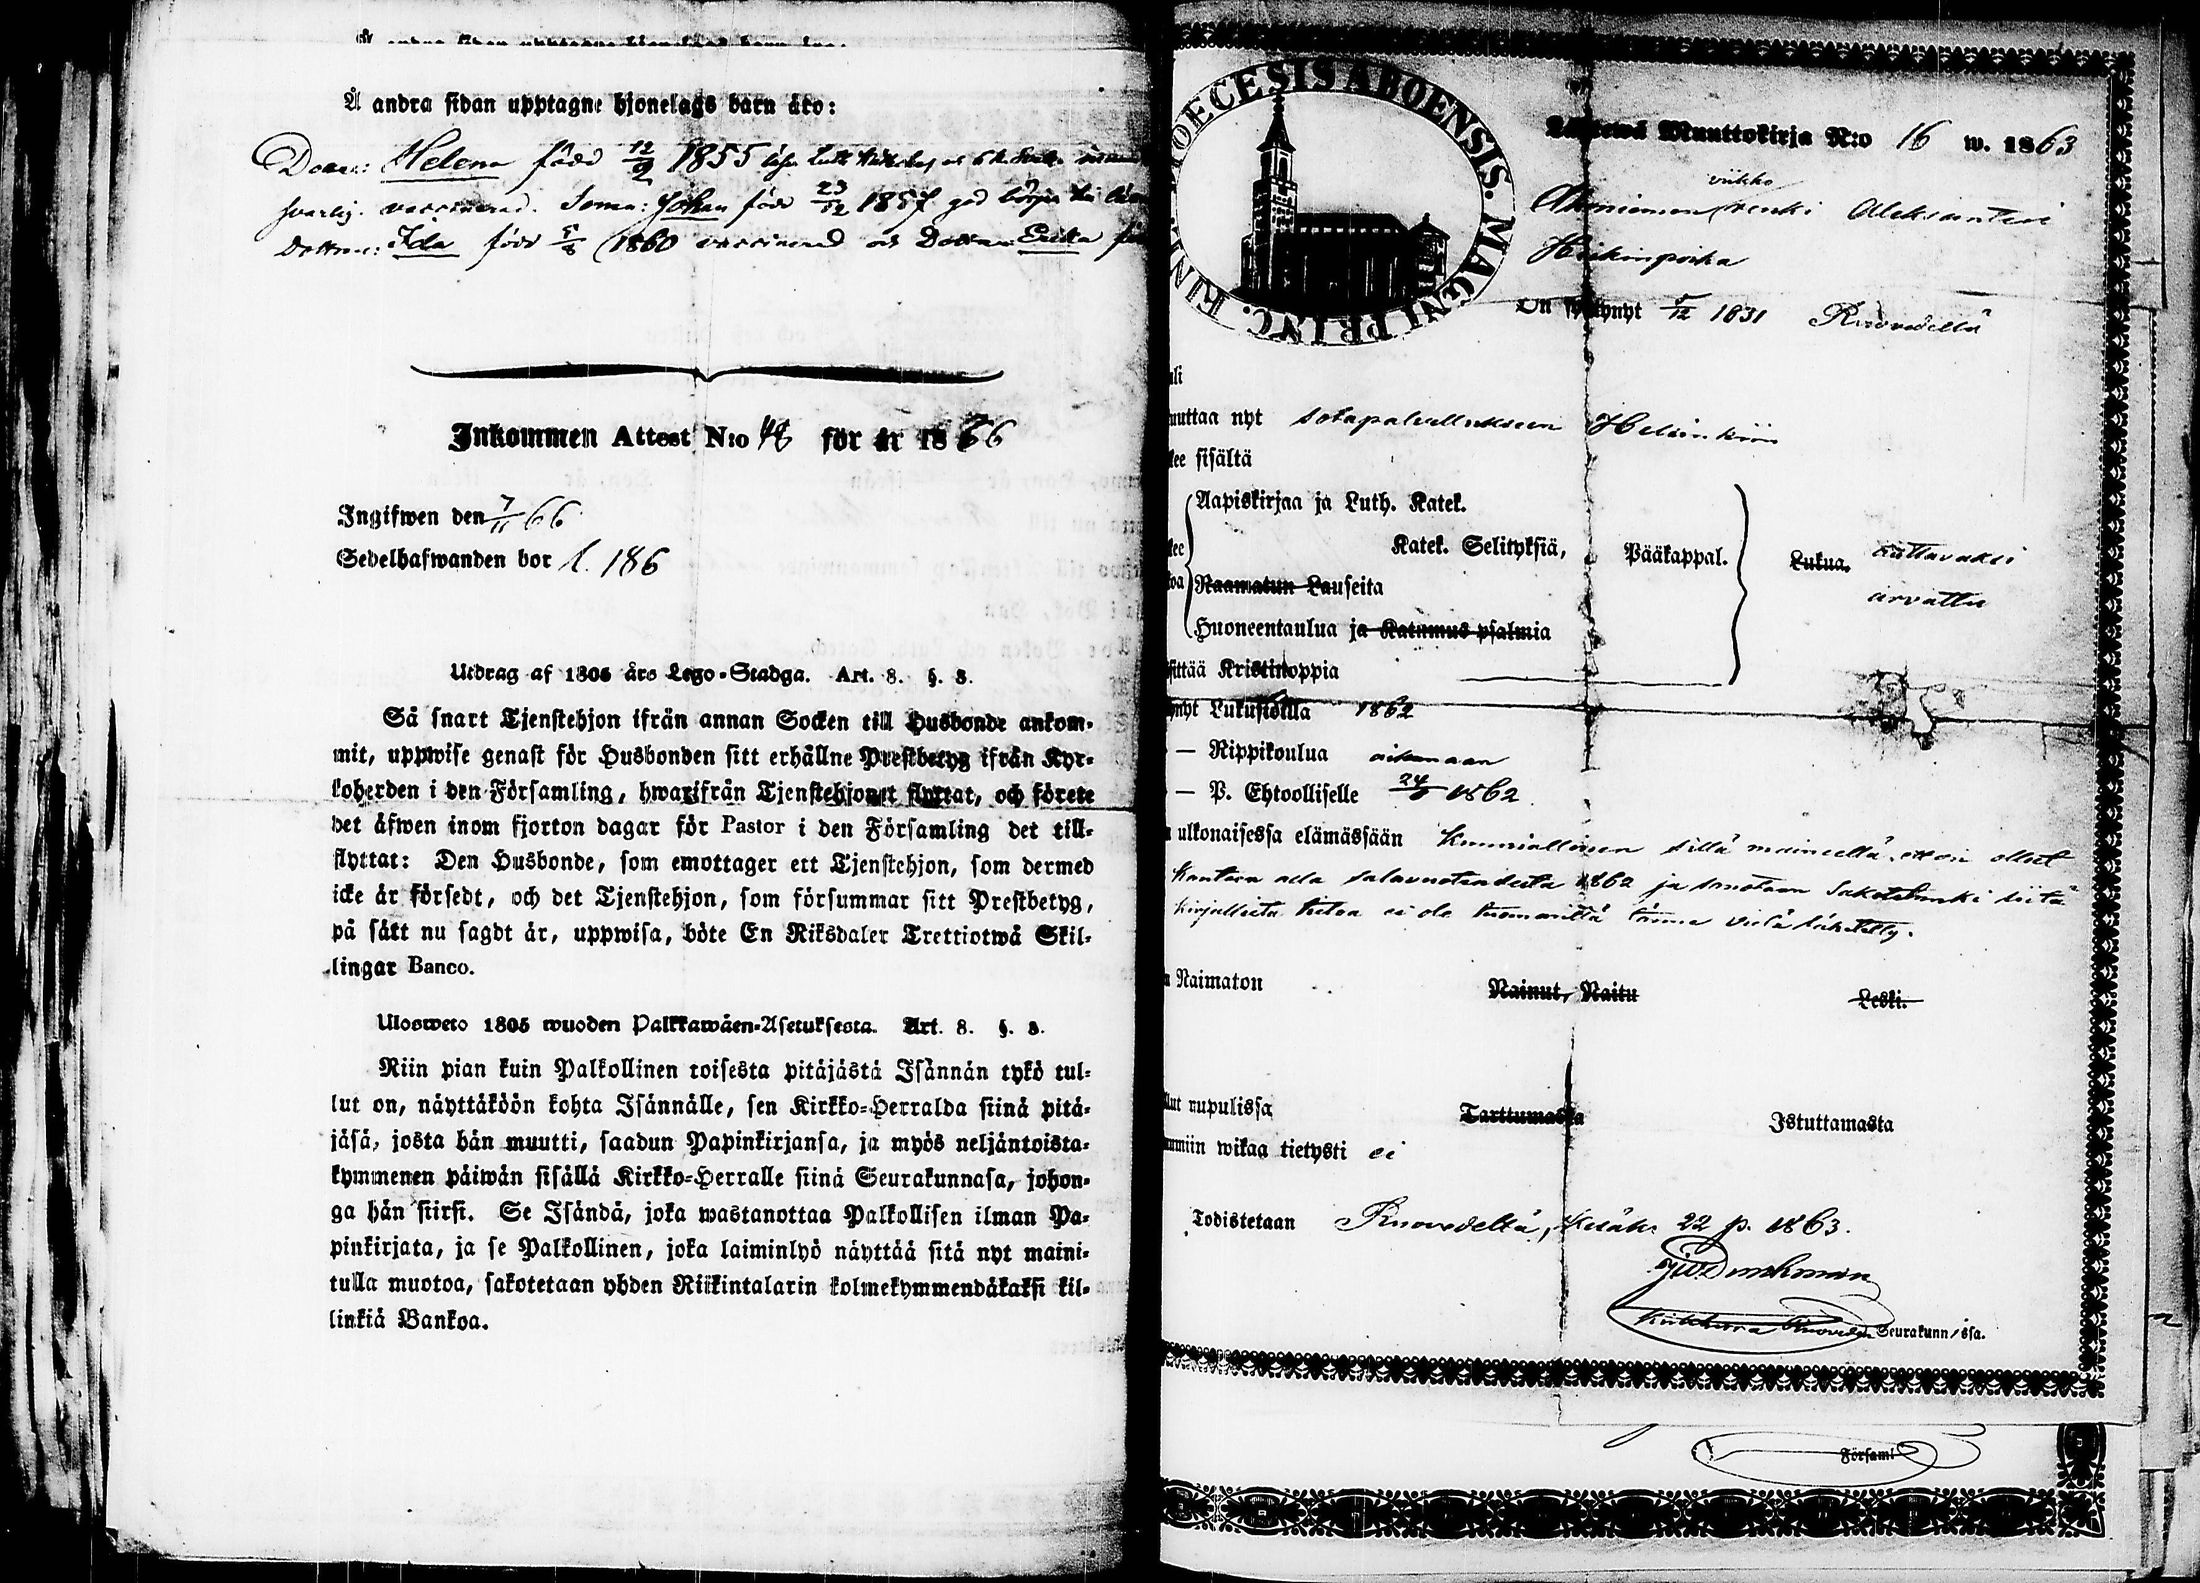 Å andra sidan upptagne hjonelags barn äro:
Dottren: Helena född 12/9 1855
svarlig. vaccinerad. Sonen: Johan född 23/12 1857
Dottren: Ida född 5/8 1860 vaccinerad och Dottren Erika
Inkommen Attest N:o 48 för år 1866
Ingifwen den 7/11 66
Sedelhafwanden bor l. 186
Utdrag af 1805 års Lego-Stadga. Art. 8. §. 3.
Så snart Tjenstehjon ifrån annan Socken till Husbonde ankom-
mit, uppwise genast för Husbonden sitt erhållne Prestbetyg ifrån Kyr-
koherden i den Församling, hwarifrån Tjenstehjonet flyttat, och förete
det äfwen inom fjorton dagar för Pastor i den Församling det till-
flyttat: Den Husbonde, som emottager ett Tjenstehjon, som dermed
icke är försedt, och det Tjenstehjon, som försummar sitt Prestbetyg,
på sätt nu sagdt är, uppwisa, böte En Riksdaler Trettiotwå Skil-
lingar Banco.
Ulosweto 1805 wuoden Palkkawäen-Asetuksesta. Art. 8. §. 3.
Niin pian kuin Palkollinen toisesta pitäjästä Isännän tykö tul-
lut on, näyttäköön kohta Isännälle, sen Kirkko-Herralda siinä pitä-
jäsä, josta hän muutti, saadun Papinkirjansa, ja myös neljäntoista-
kymmenen päiwän sisällä Kirkko-Herralle siinä Seurakunnasa, johon-
ga hän siirsi. Se Isändä, joka wastanottaa Palkollisen ilman Pa-
pinkirjata, ja se Palkollinen, joka laiminlyö näyttää sitä nyt maini-
tulla muotoa, sakotetaan yhden Riikintalarin kolmekymmendäkaksi kil-
linkiä Bankoa.
DIOECESIS ABOENSIS. MAGNI PRINC. FINL.
Lähtewä Muuttokirja N:o 16 w. 1863
viikko
renki Aleksanteri
Heikinpoika
On syntynyt 5/12 1831 Ruovedellä
muuttaa nyt sotapalvellukseen Helsinkiin
lee sisältä
Aapiskirjaa ja Luth. Katek.
Katek. Selityksiä, Pääkappal. Lukua. kuttavaksi
Raamatun Lauseita arvattu
Huoneentaulua ja Katumus psalmia
sittää Kristinoppia
nyt Lukusioilla 1862
— Rippikoulua aikanaan
— P. Ehtoolliselle 24/8 1862
ulkonaisessa elämässään kunniallisen sillä maineella, että on ollut
salavuoteudesta 1862 ja
kirjallista tietoa ei ole tuomarilta tänne vielä lähetetty.
Naimaton Nainut, Naitu Leski.
lut rupulissa Tarttumasta Istuttamasta
ruumiin wikaa tietysti ei
Todistetaan Ruovedeltä, Kesäk. 22 p. 1863.
Kirkkoherra Ruoveden Seurakunnassa.
Församl